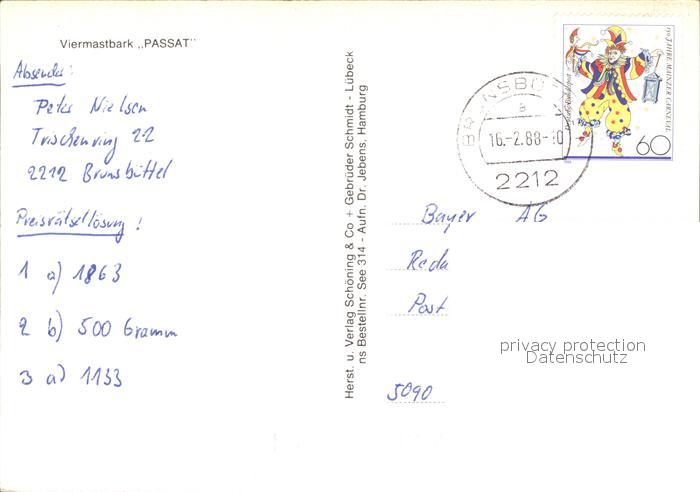 Viermastbark „PASSAT"
Absender:
Peter Nielsen
Trischenring 22
2212 Brunsbüttel
Preisrätsellösung!
1 a) 1863
2 b) 500 Gramm
3 a) 1133
Herst. u. Verlag Schöning & Co + Gebrüder Schmidt - Lübeck
ns Bestellnr. See 314 - Aufn. Dr. Jebens, Hamburg
150 JAHRE MAINZER CARNEVAL
60
a
16.-2.88-
2212
Bayer AG
Post
5090
privacy protection
Datenschutz